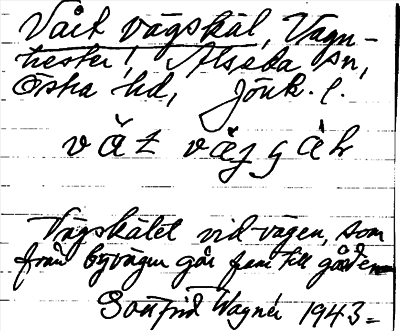 Våit vägskäl, Vagn-
hester, Alseda sn,
Östra hd, Jönk. l.
våt väjsäl
Vägskälet vid vägen, som
från byvägen går fram till gården
Gottfrid Wagnér 1943=